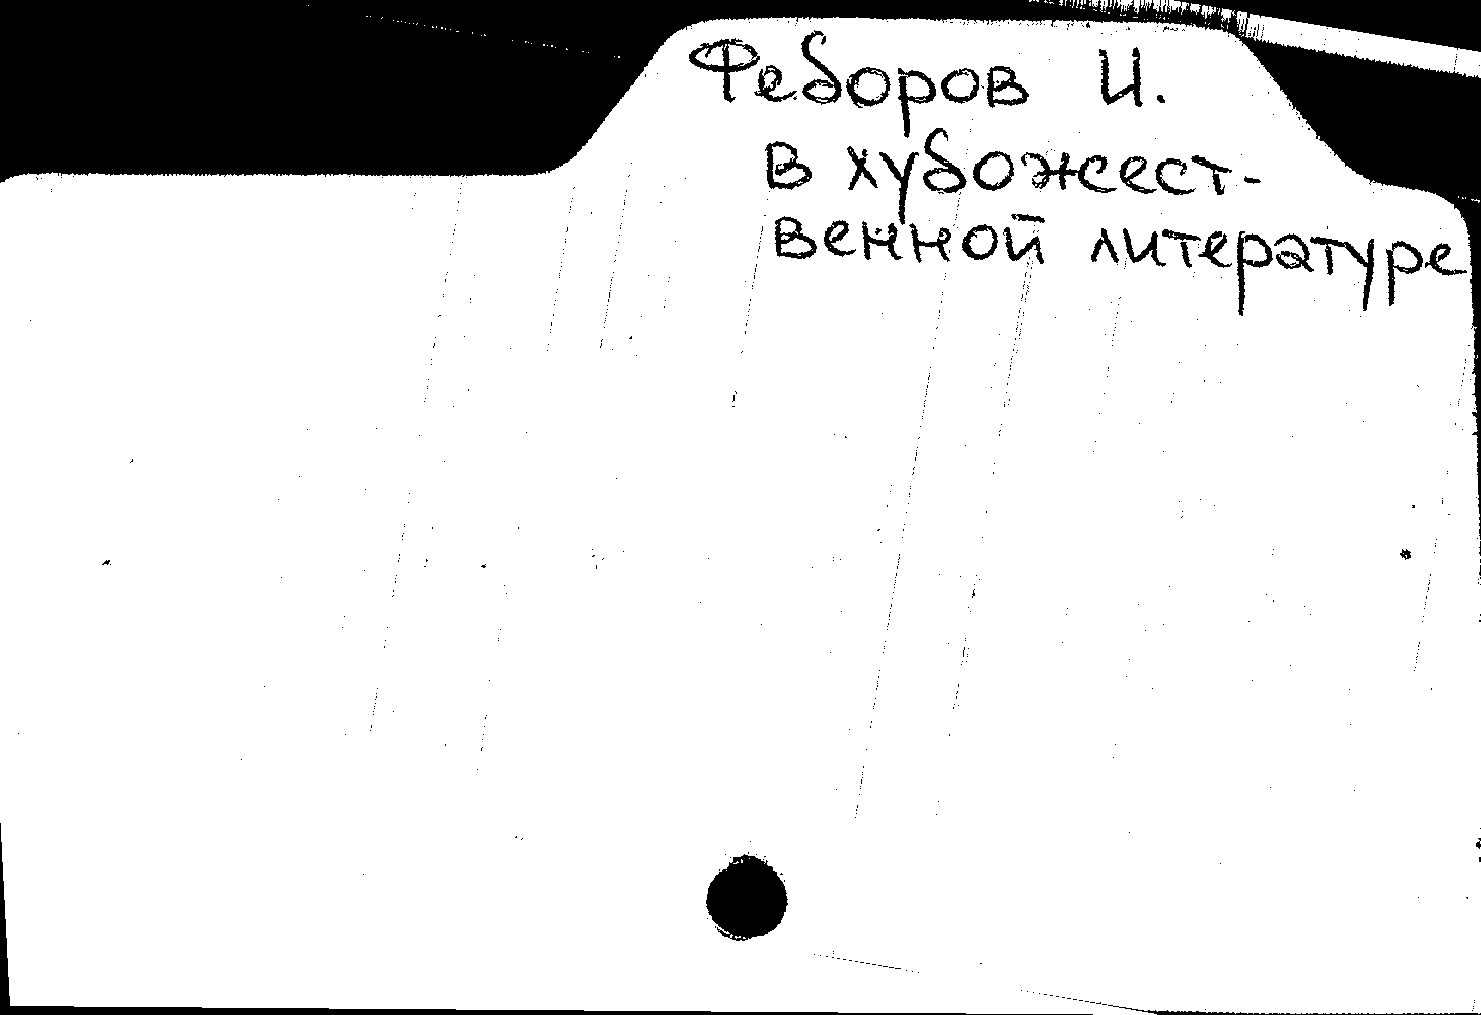 Федоров И.
в художест-
венной литературе